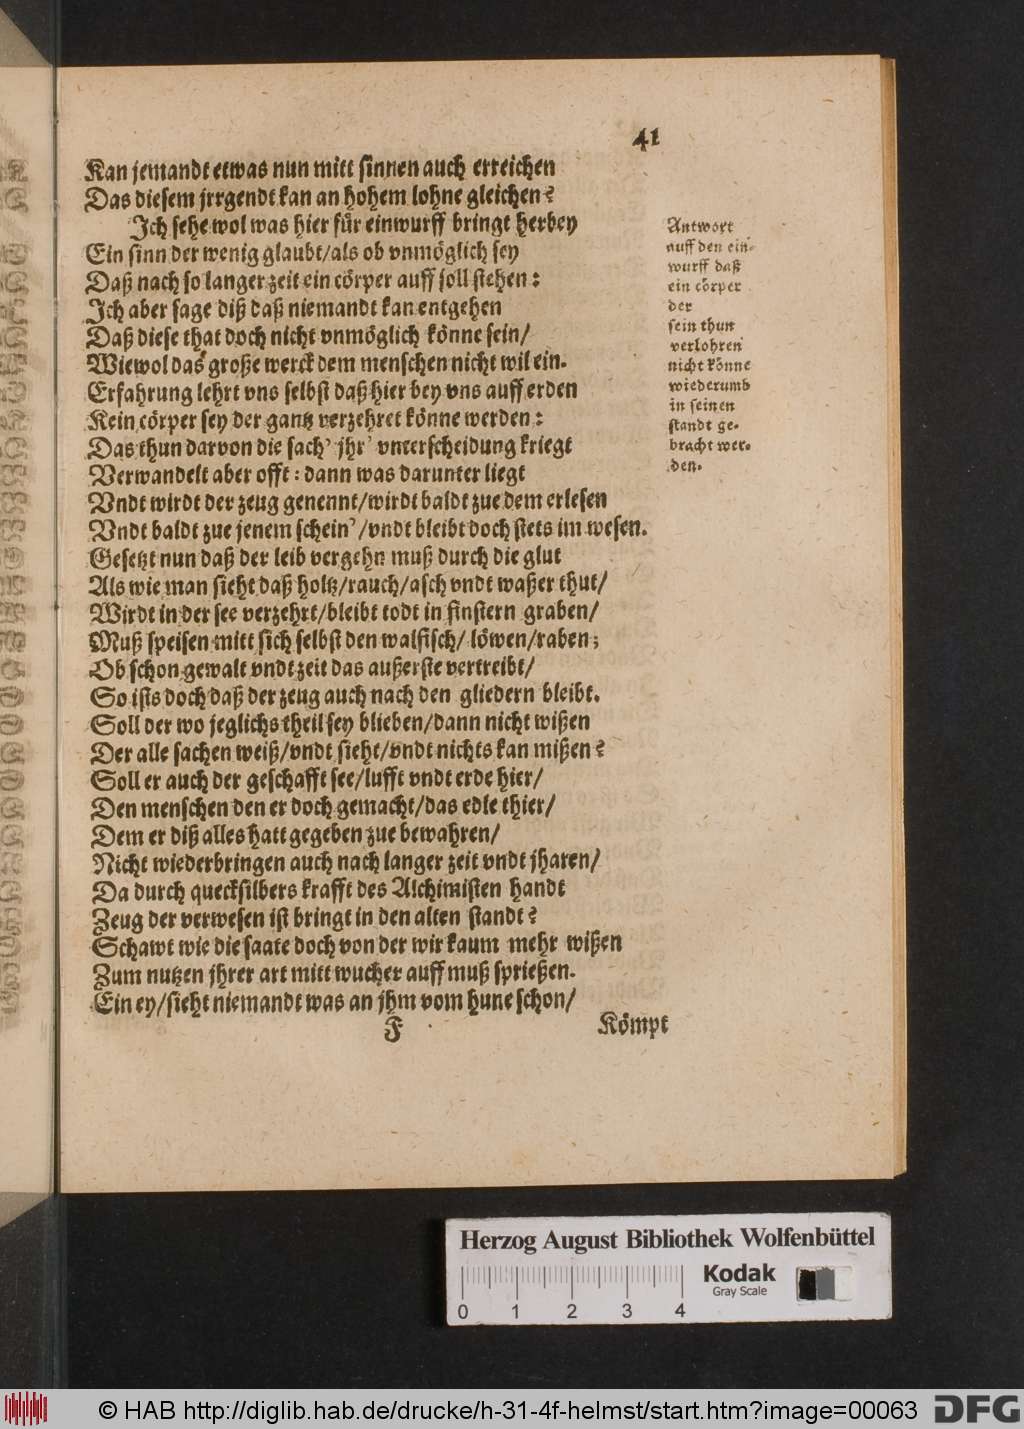 41
Kan jemandt etwas nun mitt sinnen auch erreichen
Das diesem jrrgendt kan an hohem lohne gleichen?
Ich sehe wol was hier für einwurff bringt herbey
Ein sinn der wenig glaubt/als ob vnmöglich sey
Daß nach so langer zeit ein cörper auff soll stehen:
Ich aber sage diß daß niemandt kan entgehen
Daß diese that doch nicht vnmöglich könne sein/
Wiewol das große werck dem menschen nicht wil ein.
Erfahrung lehrt vns selbst daß hier bey vns auff erden
Kein cörper sey der gantz verzehret könne werden:
Das thun darvon die sach' jhr' vnterscheidung kriegt
Verwandelt aber offt: dann was darunter liegt
Vndt wirdt der zeug genennt/wirdt baldt zue dem erlesen
Vndt baldt zue jenem schein'/vndt bleibt doch stets im wesen.
Gesetzt nun daß der leib vergehn muß durch die glut
Als wie man sieht daß holtz/rauch/asch vndt waßer thut/
Wirdt in der see verzehrt/bleibt todt in finstern graben/
Muß speisen mitt sich selbst den walfisch/löwen/raben;
Ob schon gewalt vndt zeit das außerste vertreibt/
So ists doch daß der zeug auch nach den gliedern bleibt.
Soll der wo jeglichs theil sey blieben/dann nicht wißen
Der alle sachen weiß/vndt sieht/vndt nichts kan mißen?
Soll er auch der geschafft see/lufft vndt erde hier/
Den menschen den er doch gemacht/das edle thier/
Dem er diß alles hatt gegeben zue bewahren/
Nicht wiederbringen auch nach langer zeit vndt jharen/
Da durch quecksilbers krafft des Alchimisten handt
Zeug der verwesen ist bringt in den alten standt?
Schawt wie die saate doch von der wir kaum mehr wißen
Zum nutzen jhrer art mitt wucher auff muß sprießen.
Ein ey/sieht niemandt was an jhm vom hune schon/
F
Kömpt
Antwort
auff den ein-
wurff daß
ein cörper
der
sein thun
verlohren
nicht könne
wiederumb
in seinen
standt ge-
bracht wer-
den.
Herzog August Bibliothek Wolfenbüttel
0 1 2 3 4
Kodak
Gray Scale
© HAB http://diglib.hab.de/drucke/h-31-4f-helmst/start.htm?image=00063
DFG